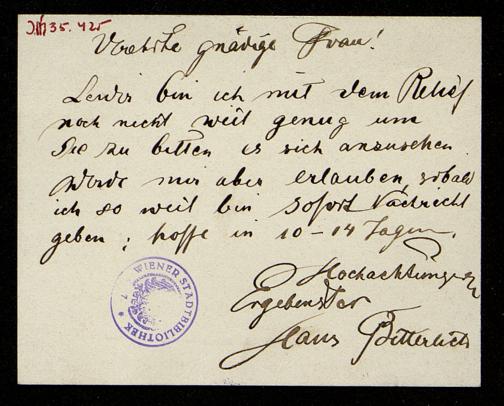 JN 35.425
Verehrte gnädige Frau!
Leider bin ich mit dem Relief
noch nicht weit genug um
Sie zu bitten es sich anzusehen
werde mir aber erlauben, sobald
ich so weit bin sofort Nachricht
geben; hoffe in 10-14 Tagen.
Hochachtungs
Ergebenster
Hans Bitterlich
WIENER STADTBIBLIOTHEK